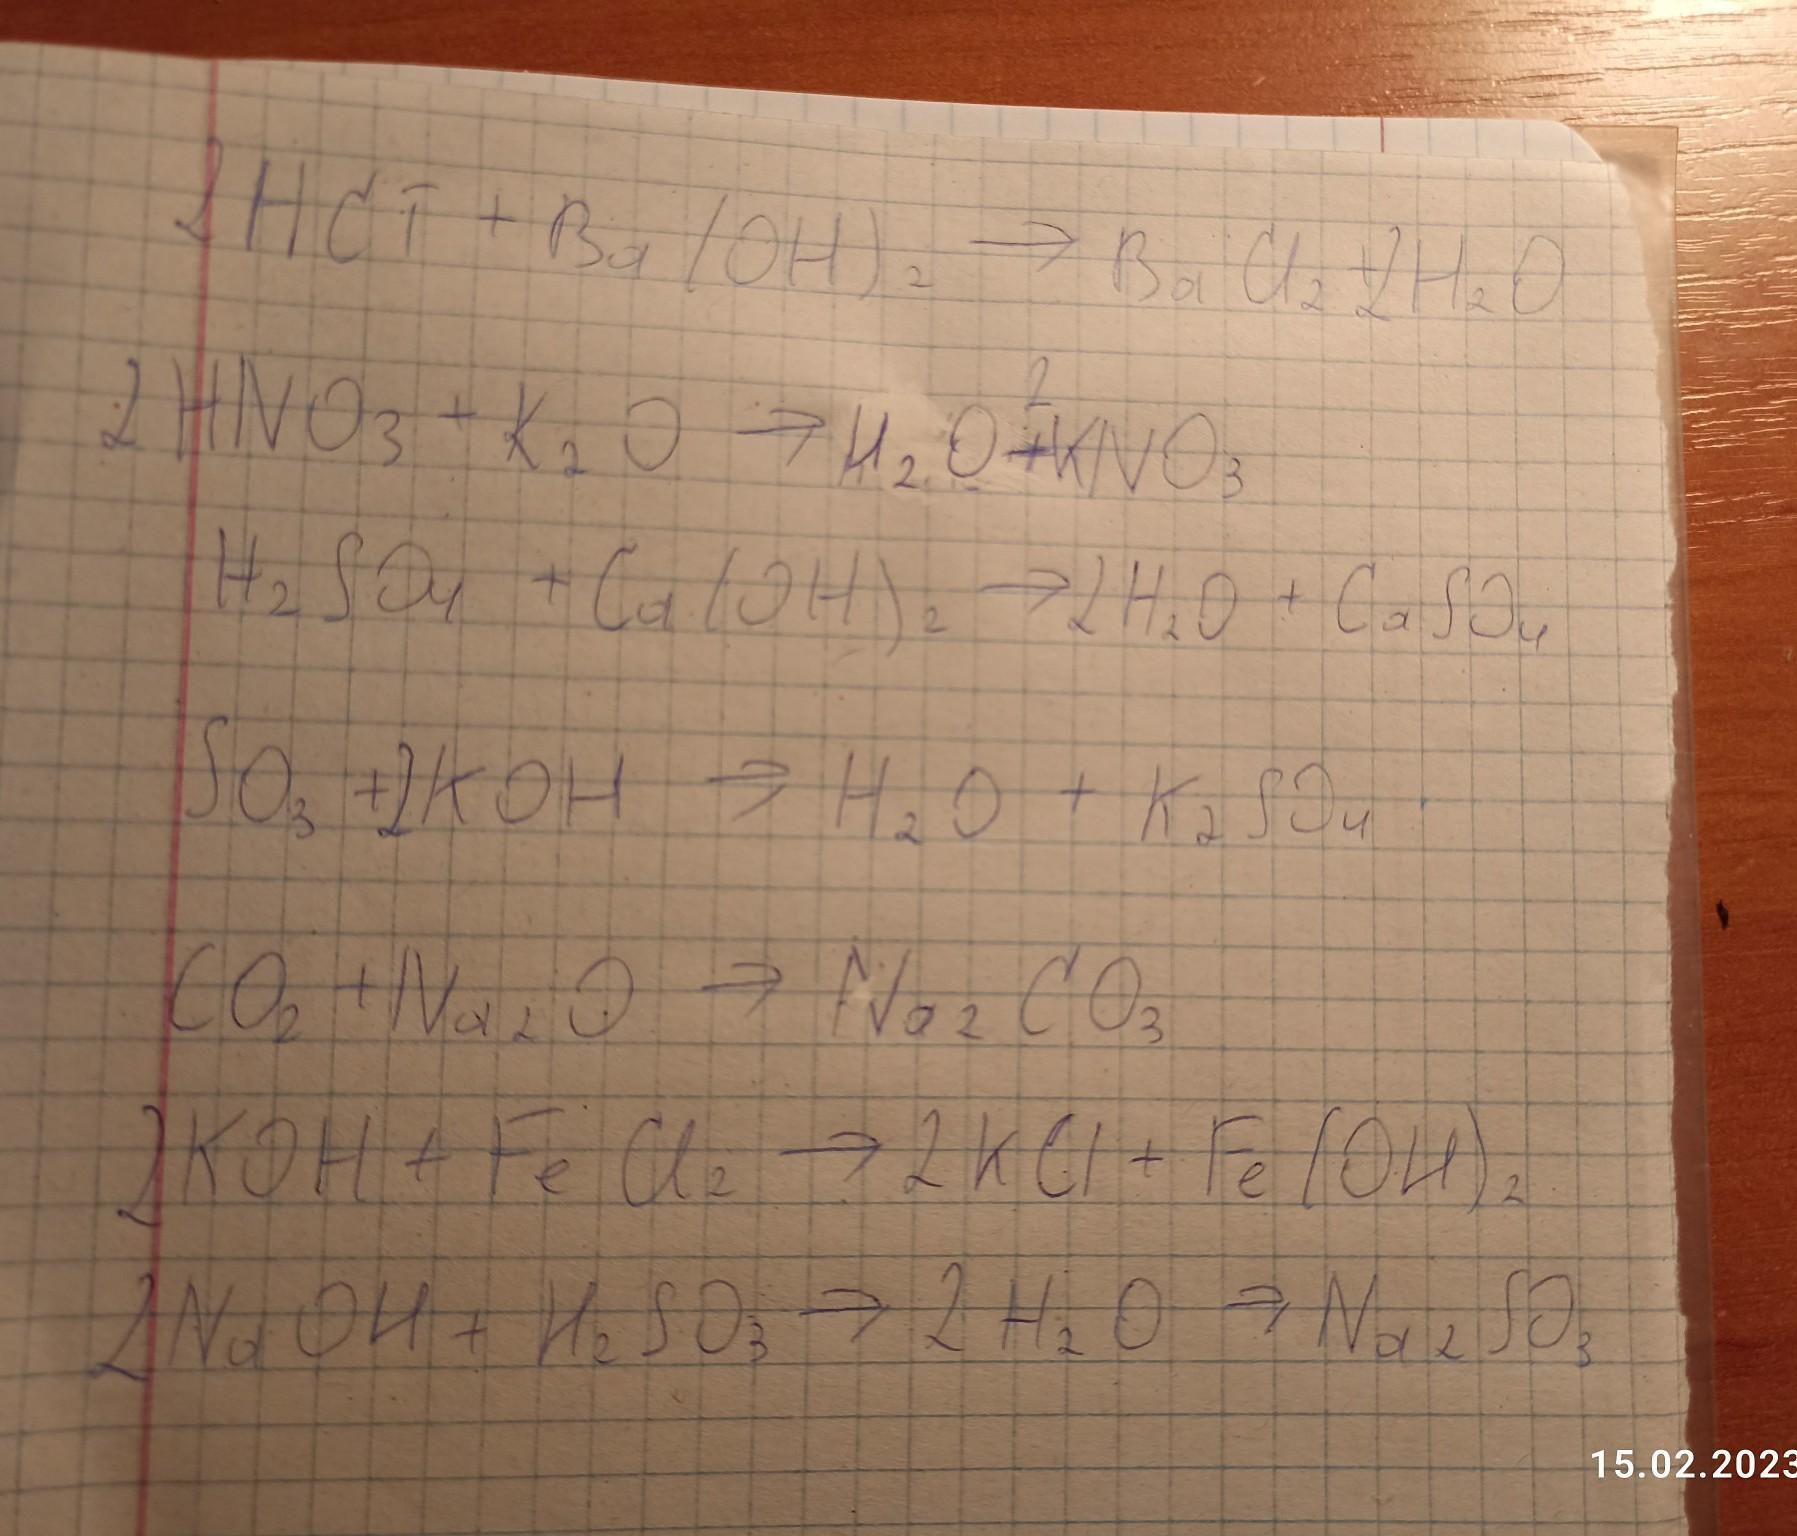 2HCl + Ba(OH)₂ → BaCl₂ + 2H₂O
2HNO₃ + K₂O → H₂O + 2KNO₃
H₂SO₄ + Ca(OH)₂ → 2H₂O + CaSO₄
SO₃ + 2KOH → H₂O + K₂SO₄
CO₂ + Na₂O → Na₂CO₃
2KOH + FeCl₂ → 2KCl + Fe(OH)₂
2NaOH + H₂SO₃ → 2H₂O → Na₂SO₃
15.02.2023